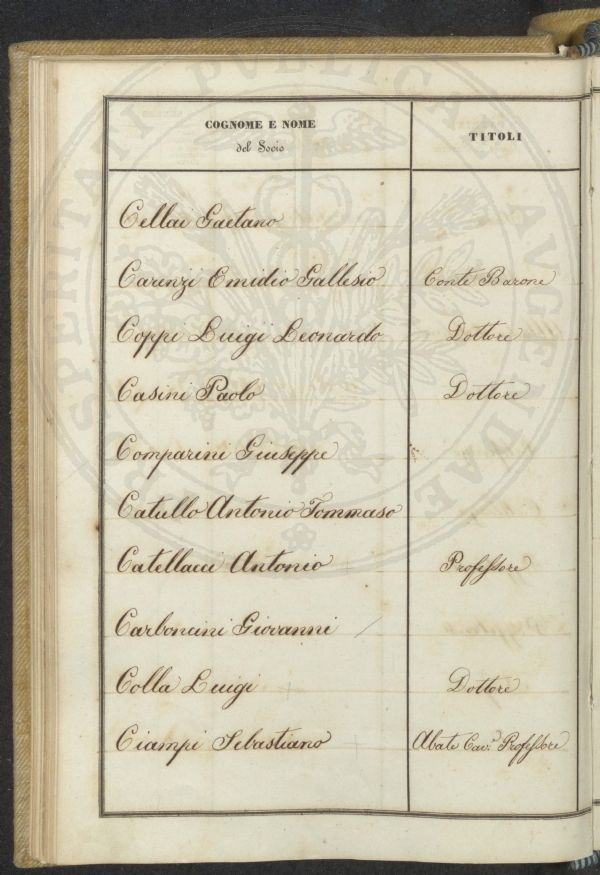 COGNOME E NOME
del Socio
TITOLI
Cellai Gaetano
Carenzi Emidio Gallesio Conte Barone
Coppi Luigi Leonardo Dottore
Casini Paolo Dottore
Comparini Giuseppe
Catullo Antonio Tommaso
Catellacci Antonio Professore
Carboncini Giovanni
Colla Luigi Dottore
Ciampi Sebastiano Abate Cav.e Professore
PROSPERITATI PUBLICAE AUGENDAE